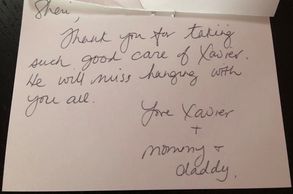 Sheri,
Thank you for taking
such good care of Xavier.
He will miss hanging with
you all.
Love Xavier
+
mommy +
daddy.